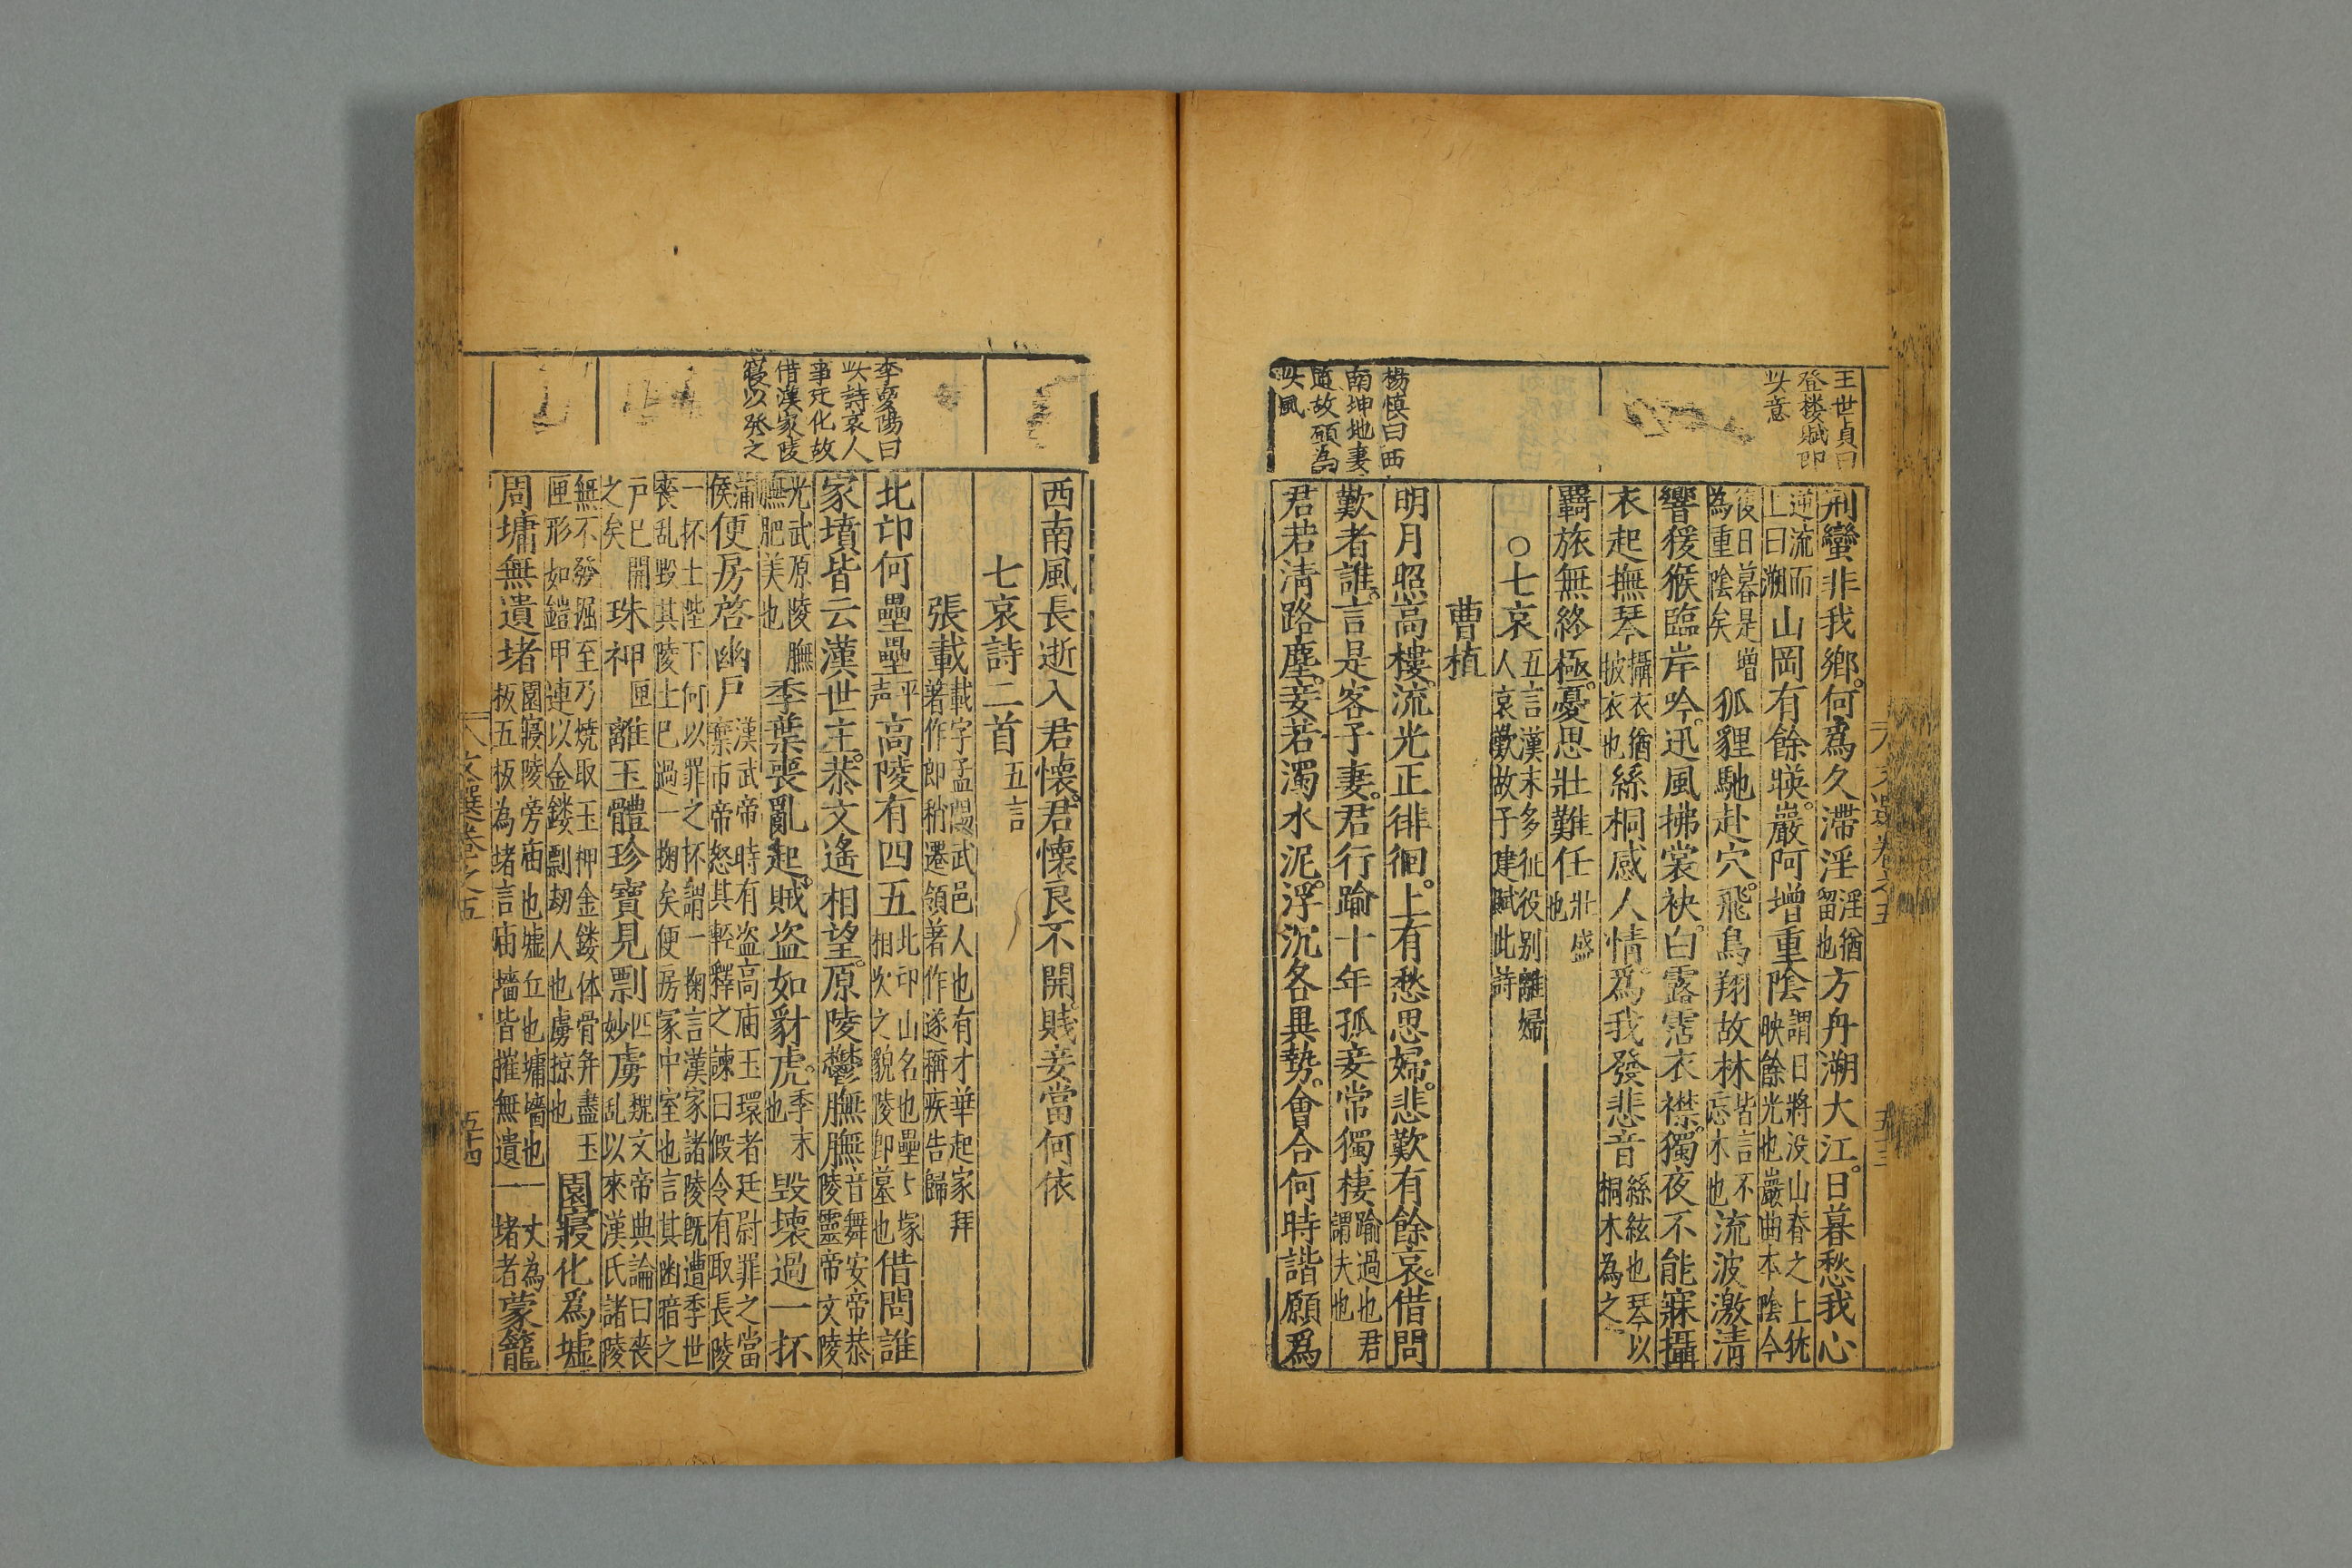 王世貞曰
登楼賦即
此意
楊慎曰西
南坤地妻
道故願為
此風
荆蠻非我鄉何爲久滯淫淫猶留也方舟溯大江日暮愁我心
逆流而上曰溯山岡有餘暎巖阿增重陰謂日將没山脊之上猶映餘光也巖曲本陰今
復日暮是增為重陰矣狐貍馳赴穴飛鳥翔故林皆言不忘本也流波激淸
響猨猴臨岸吟迅風拂裳袂白露霑衣襟獨夜不能寐攝
衣起撫琴攝衣猶披衣也絲桐感人情爲我發悲音絲絃也琴以桐木為之
羇旅無終極憂思壯難任壯盛也
○七哀五言漢末多征役别離婦人哀歎故子建賦此詩
曹植
明月照高樓流光正徘徊上有愁思婦悲歎有餘哀借問
歎者誰言是客子妻君行踰十年孤妾常獨棲踰過也君謂夫也
君若淸路塵妾若濁水泥浮沉各異勢會合何時諧願爲
文選卷之五
五十三
李夢陽曰
此詩哀人
事死化故
借漢家陵
寢以發之
西南風長逝入君懷君懷良不開賤妾當何依
七哀詩二首五言
張載載字孟陽武邑人也有才華起家拜著作郎稍遷領著作遂稱疾告歸
北邙何壘壘平声高陵有四五北邙山名也壘〻塚相次之貌陵即墓也借問誰
家墳皆云漢世主恭文遙相望原陵鬱膴膴音舞安帝恭陵靈帝文陵
光武原陵膴膴肥美也季葉喪亂起賊盗如豺虎季末也毁壞過一抔
蒲侯便房啓幽戶漢武帝時有盗高庙玉環者廷尉罪之當棄市帝怒其輕釋之諫曰假令有取長陵
一抔土陛下何以罪之抔謂一掬言漢家諸陵既遭季世喪乱毁其陵土已過一掬矣便房冢中室也言其幽暗之
戶已開之矣珠柙匣離玉體珍寶見剽匹妙虜魏文帝典論曰喪乱以來漢氏諸陵
無不發掘至乃焼取玉柙金鏤体骨并盡玉匣形如鎧甲連以金鏤剽刼人也虜掠也園寢化爲墟
周墉無遺堵園寢陵旁庙也墟丘也墉墻也一丈為板五板為堵言庙墻皆摧無遺一堵者蒙籠
文選卷之五
五十四